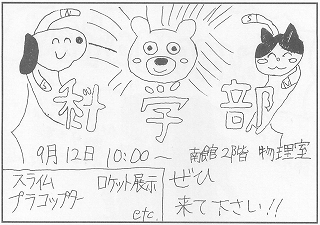 N
S
科学部
9月12日 10:00〜 南館2階 物理室
スライム ロケット展示
プラコプター
etc.
ぜひ
来て下さい!!